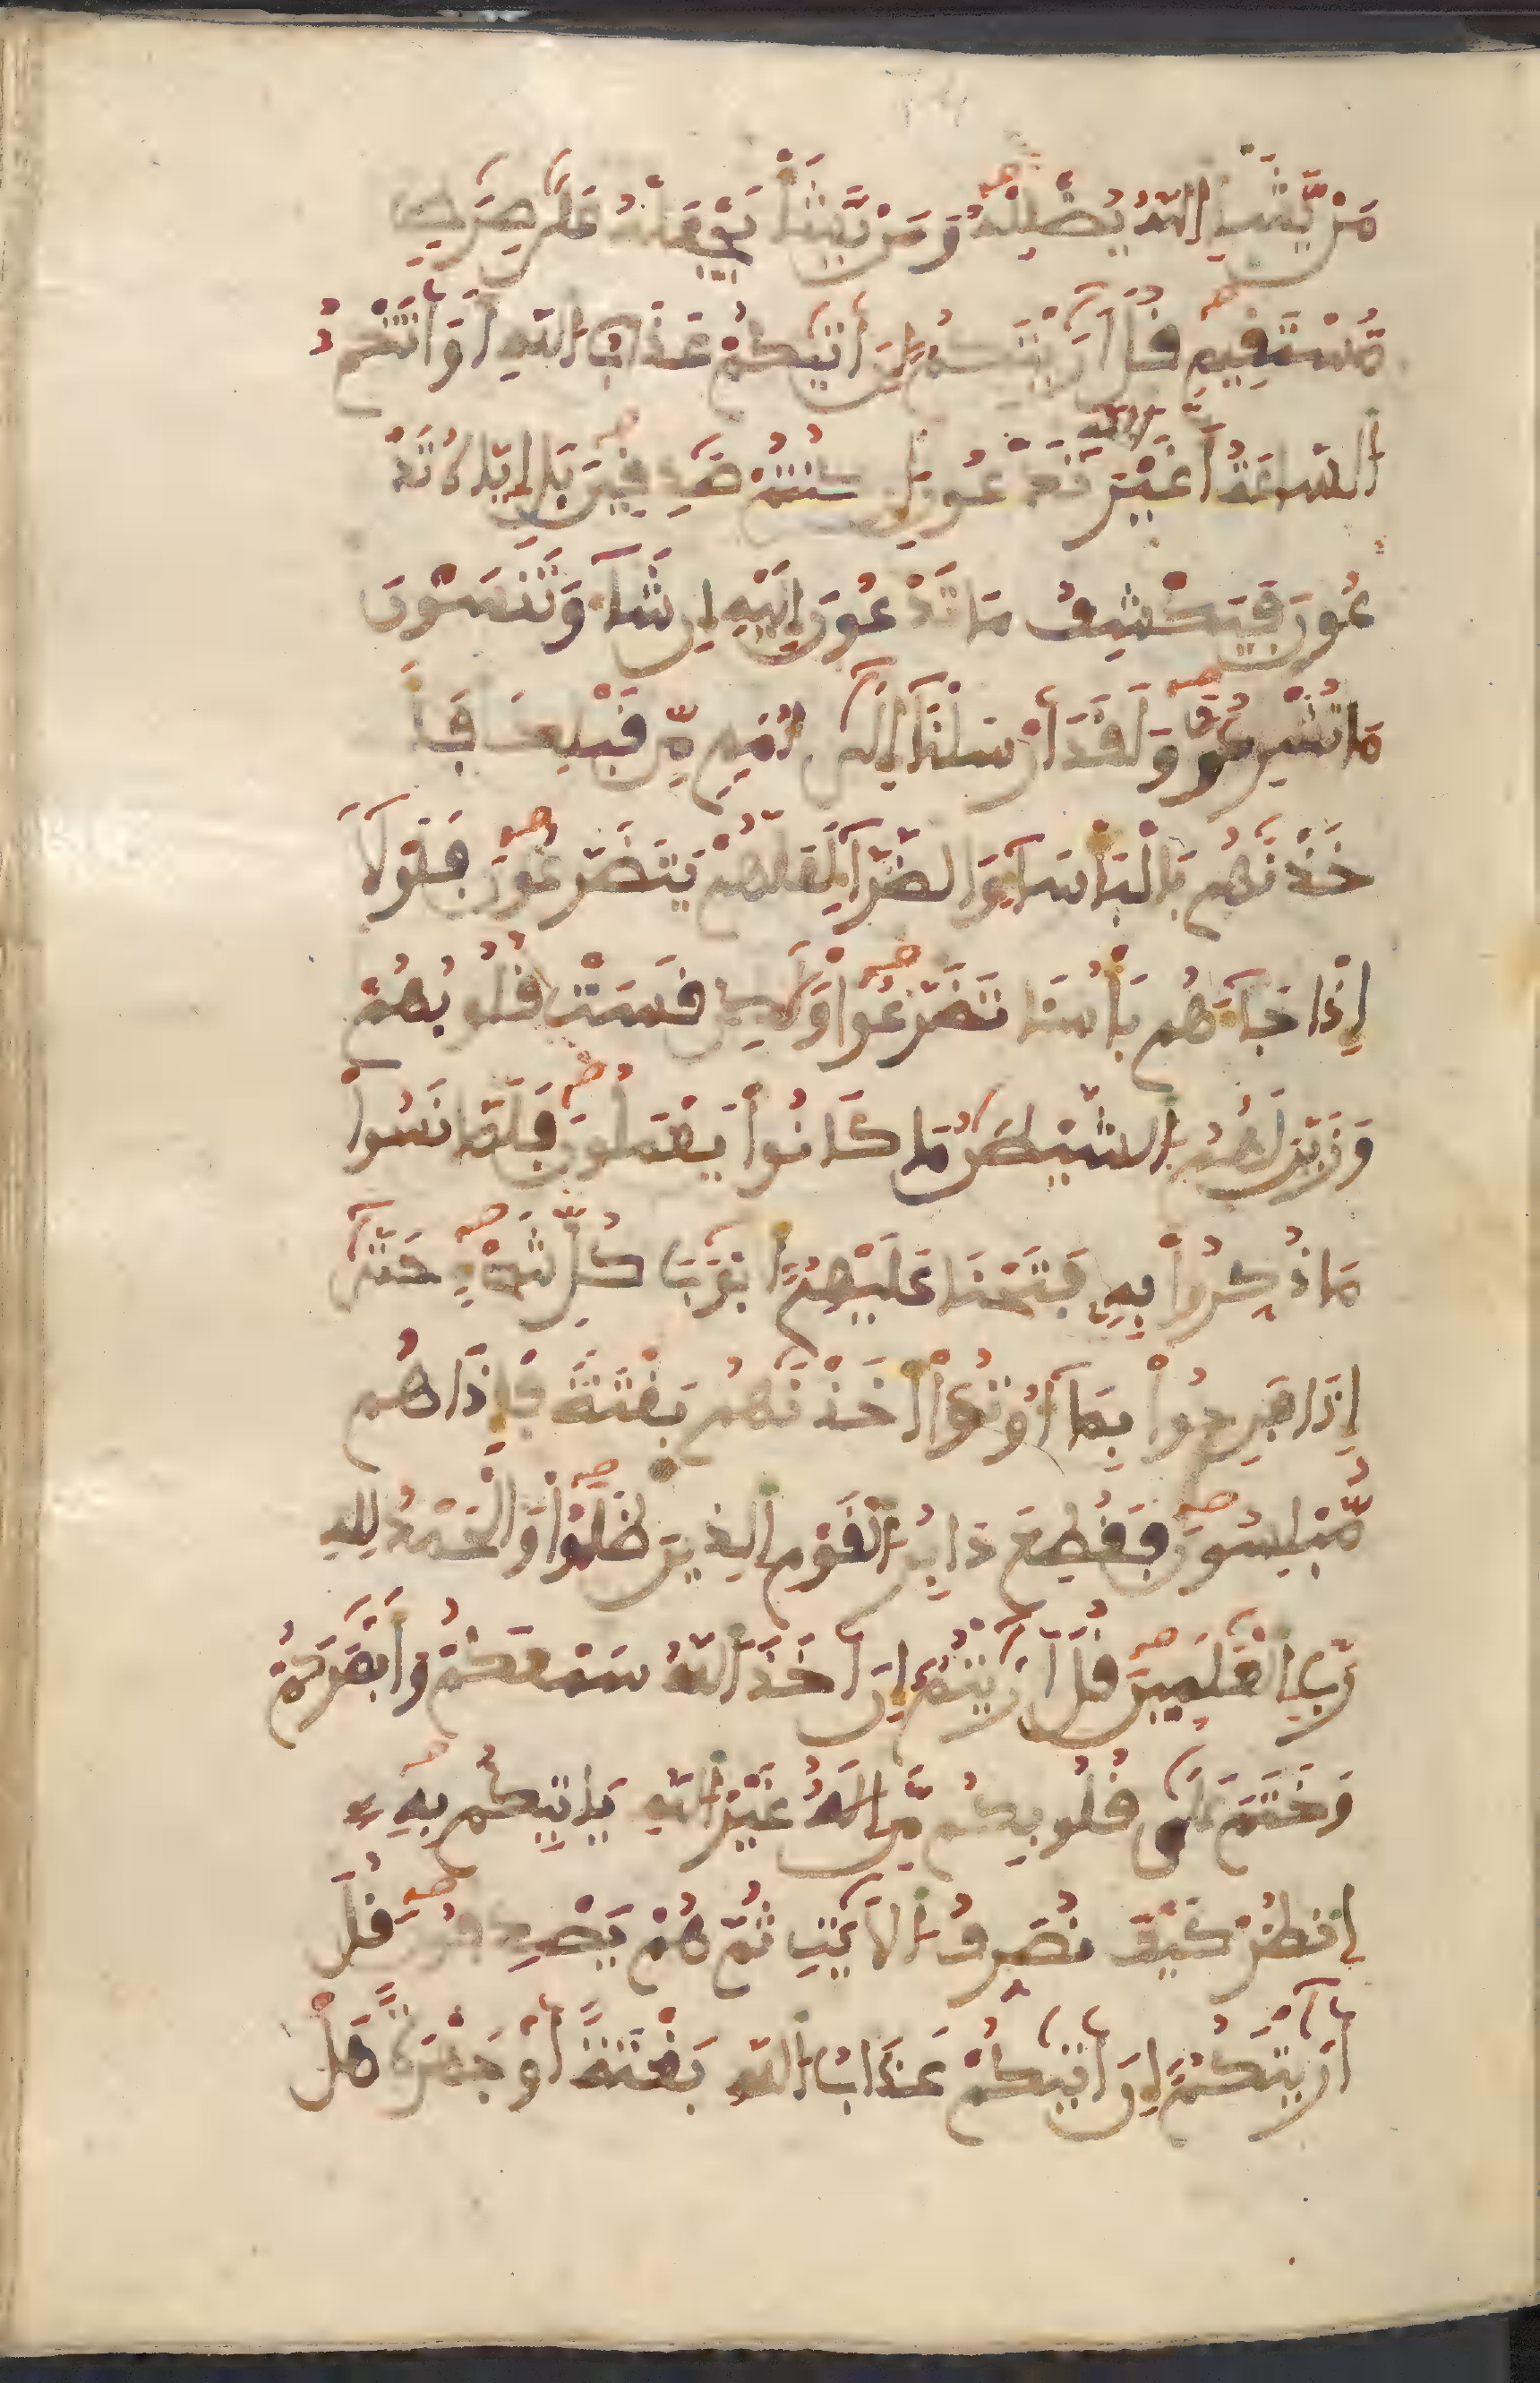 مَنْ يَّشَإِ اللَّهُ يُضْلِلْهُ وَمَنْ يَّشَأْ يَجْعَلْهُ عَلَىٰ صِرَٰطٍ
مُّسْتَقِيمٍ قُلَ اَرَٰيْتَكُمُ إِنَ اَتَيٰكُمْ عَذَابُ اللَّهِ أَوَ اَتَتْكُمُ
السَّاعَةُ أَغَيْرَ اللَّهِ تَدْعُونَ إِن كُنتُمْ صَٰدِقِينَ بَلِ اِيَّاهُ تَدْ
عُونَ فَيَكْشِفُ مَا تَدْعُونَ إِلَيْهِ إِن شَآءَ وَتَنسَوْنَ
مَا تُشْرِكُونَ وَلَقَدَ اَرْسَلْنَآ إِلَىٰٓ أُمَمٍ مِّن قَبْلِكَ فَأَ
خَذْنَٰهُم بِالْبَأْسَآءِ وَالضَّرَّآءِ لَعَلَّهُمْ يَتَضَرَّعُونَ فَلَوْلَآ
إِذْ جَآءَهُم بَأْسُنَا تَضَرَّعُوا وَلَٰكِن قَسَتْ قُلُوبُهُمْ
وَزَيَّنَ لَهُمُ الشَّيْطَٰنُ مَا كَانُوا يَعْمَلُونَ فَلَمَّا نَسُوا
مَا ذُكِّرُوا بِهِ فَتَحْنَا عَلَيْهِمُ أَبْوَٰبَ كُلِّ شَيْءٍ حَتَّىٰٓ
إِذَا فَرِحُوا بِمَآ أُوتُوٓا أَخَذْنَٰهُم بَغْتَةً فَإِذَا هُم
مُّبْلِسُونَ فَقُطِعَ دَابِرُ الْقَوْمِ الذِينَ ظَلَمُوا وَالْحَمْدُ لِلهِ
رَبِّ الْعَٰلَمِينَ قُلَ اَرَٰيْتُمُ إِنَ اَخَذَ اللَّهُ سَمْعَكُمْ وَأَبْصَٰرَكُمْ
وَخَتَمَ عَلَىٰ قُلُوبِكُم مَّنِ اِلَٰهٌ غَيْرُ اللَّهِ يَأْتِيكُم بِهِ
اِنظُرْ كَيْفَ نُصَرِّفُ الْأَيَٰتِ ثُمَّ هُمْ يَصْدِفُونَ قُلَ
اَرَٰيْتَكُمُ إِنَ اَتَيٰكُمْ عَذَابُ اللَّهِ بَغْتَةً أَوْ جَهْرَةً هَلْ